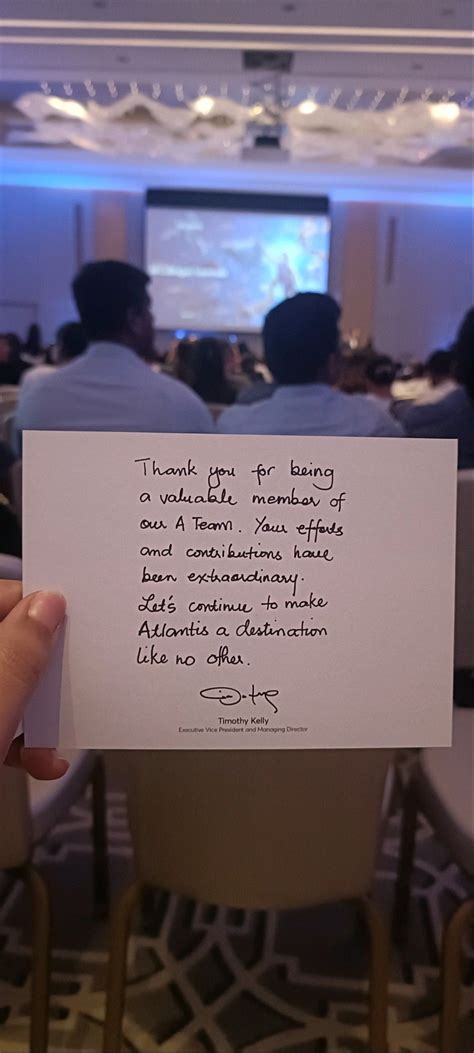 Thank you for being
a valuable member of
our A Team. Your efforts
and contributions have
been extraordinary.
Let's continue to make
Atlantis a destination
like no other.
Timothy Kelly
Executive Vice President and Managing Director